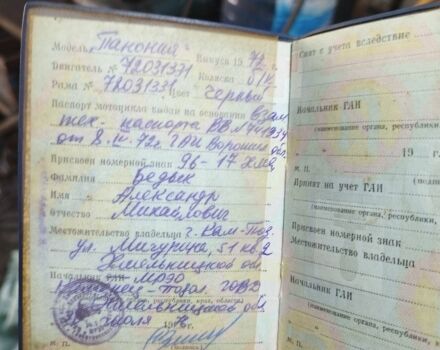 Модель "Панония" Выпуск 1972 г.
Двигатель № 72031331 Коляска б/к
Рама № 72031331 Цвет Черный
Паспорт мотоцикла выдан на основании Взам
тех. паспорта
от 8.IV.72г. ГАИ обл.
Присвоен номерной знак 96-17 Хмд
Фамилия Бедык
Имя Александр
Отчество Михайлович
Местожительство владельца г. Кам-Под.
ул. Мичурина, 51 кв 2
Хмельницкой обл.
Начальник ГАИ МОЭО
ГОВД
Хмельницкой обл.
июля
М. П.
Снят с учета вследствие
Начальник ГАИ
(наименование органа, республики,
19 г.
М. П.
Принят на учет ГАИ
(наименование органа, республики,
Присвоен номерной знак
Местожительство владельца
Начальник ГАИ
(наименование органа, республики,
М. П.